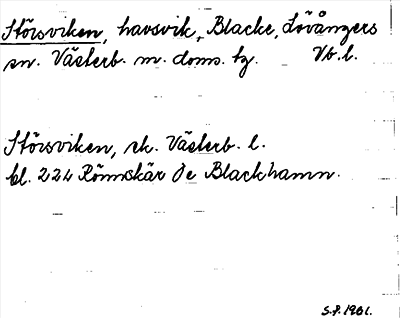 Störsviken, havsvik, Blacke, Lövångers
sn. Västerb. m. doms. tg. Vb. l.
Störsviken, ek. Västerb. l.
bl. 224 Rönnskär Öe Blackhamn.
S.P. 1961.